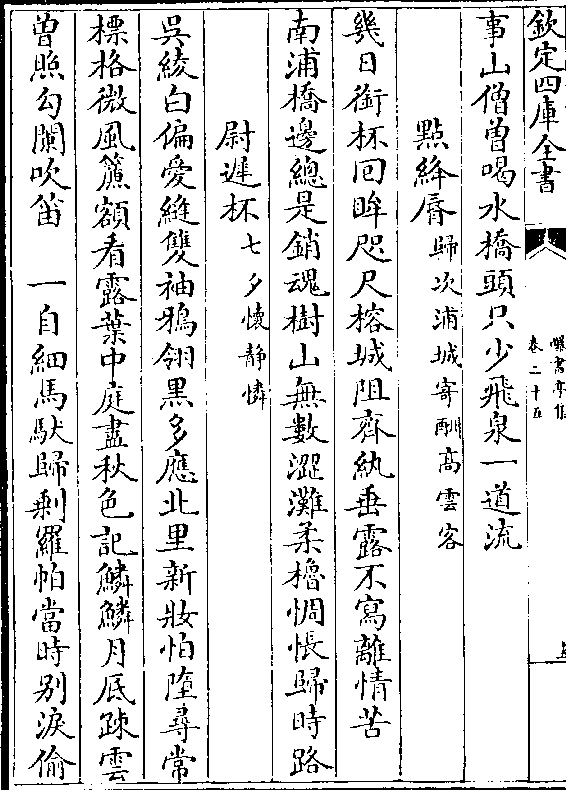 欽定四庫全書
曝書亭集
卷二十五
事山僧曽喝水橋頭只少飛泉一道流
點絳脣歸次浦城寄酬髙雲客
幾日銜杯回眸咫尺榕城阻齊紈垂露不寫離情苦
南浦橋邊總是銷魂樹山無數澀灘柔櫓惆悵歸時路
尉遲杯七夕懐静憐
吳綾白偏愛縫雙袖鴉翎黒多應北里新妝怕墮尋常
標格微風簾額看露葉中庭盡秋色記鱗鱗月底疎雲
曽照勾闌吹笛　一自細馬馱歸剰羅帕當時別淚偷